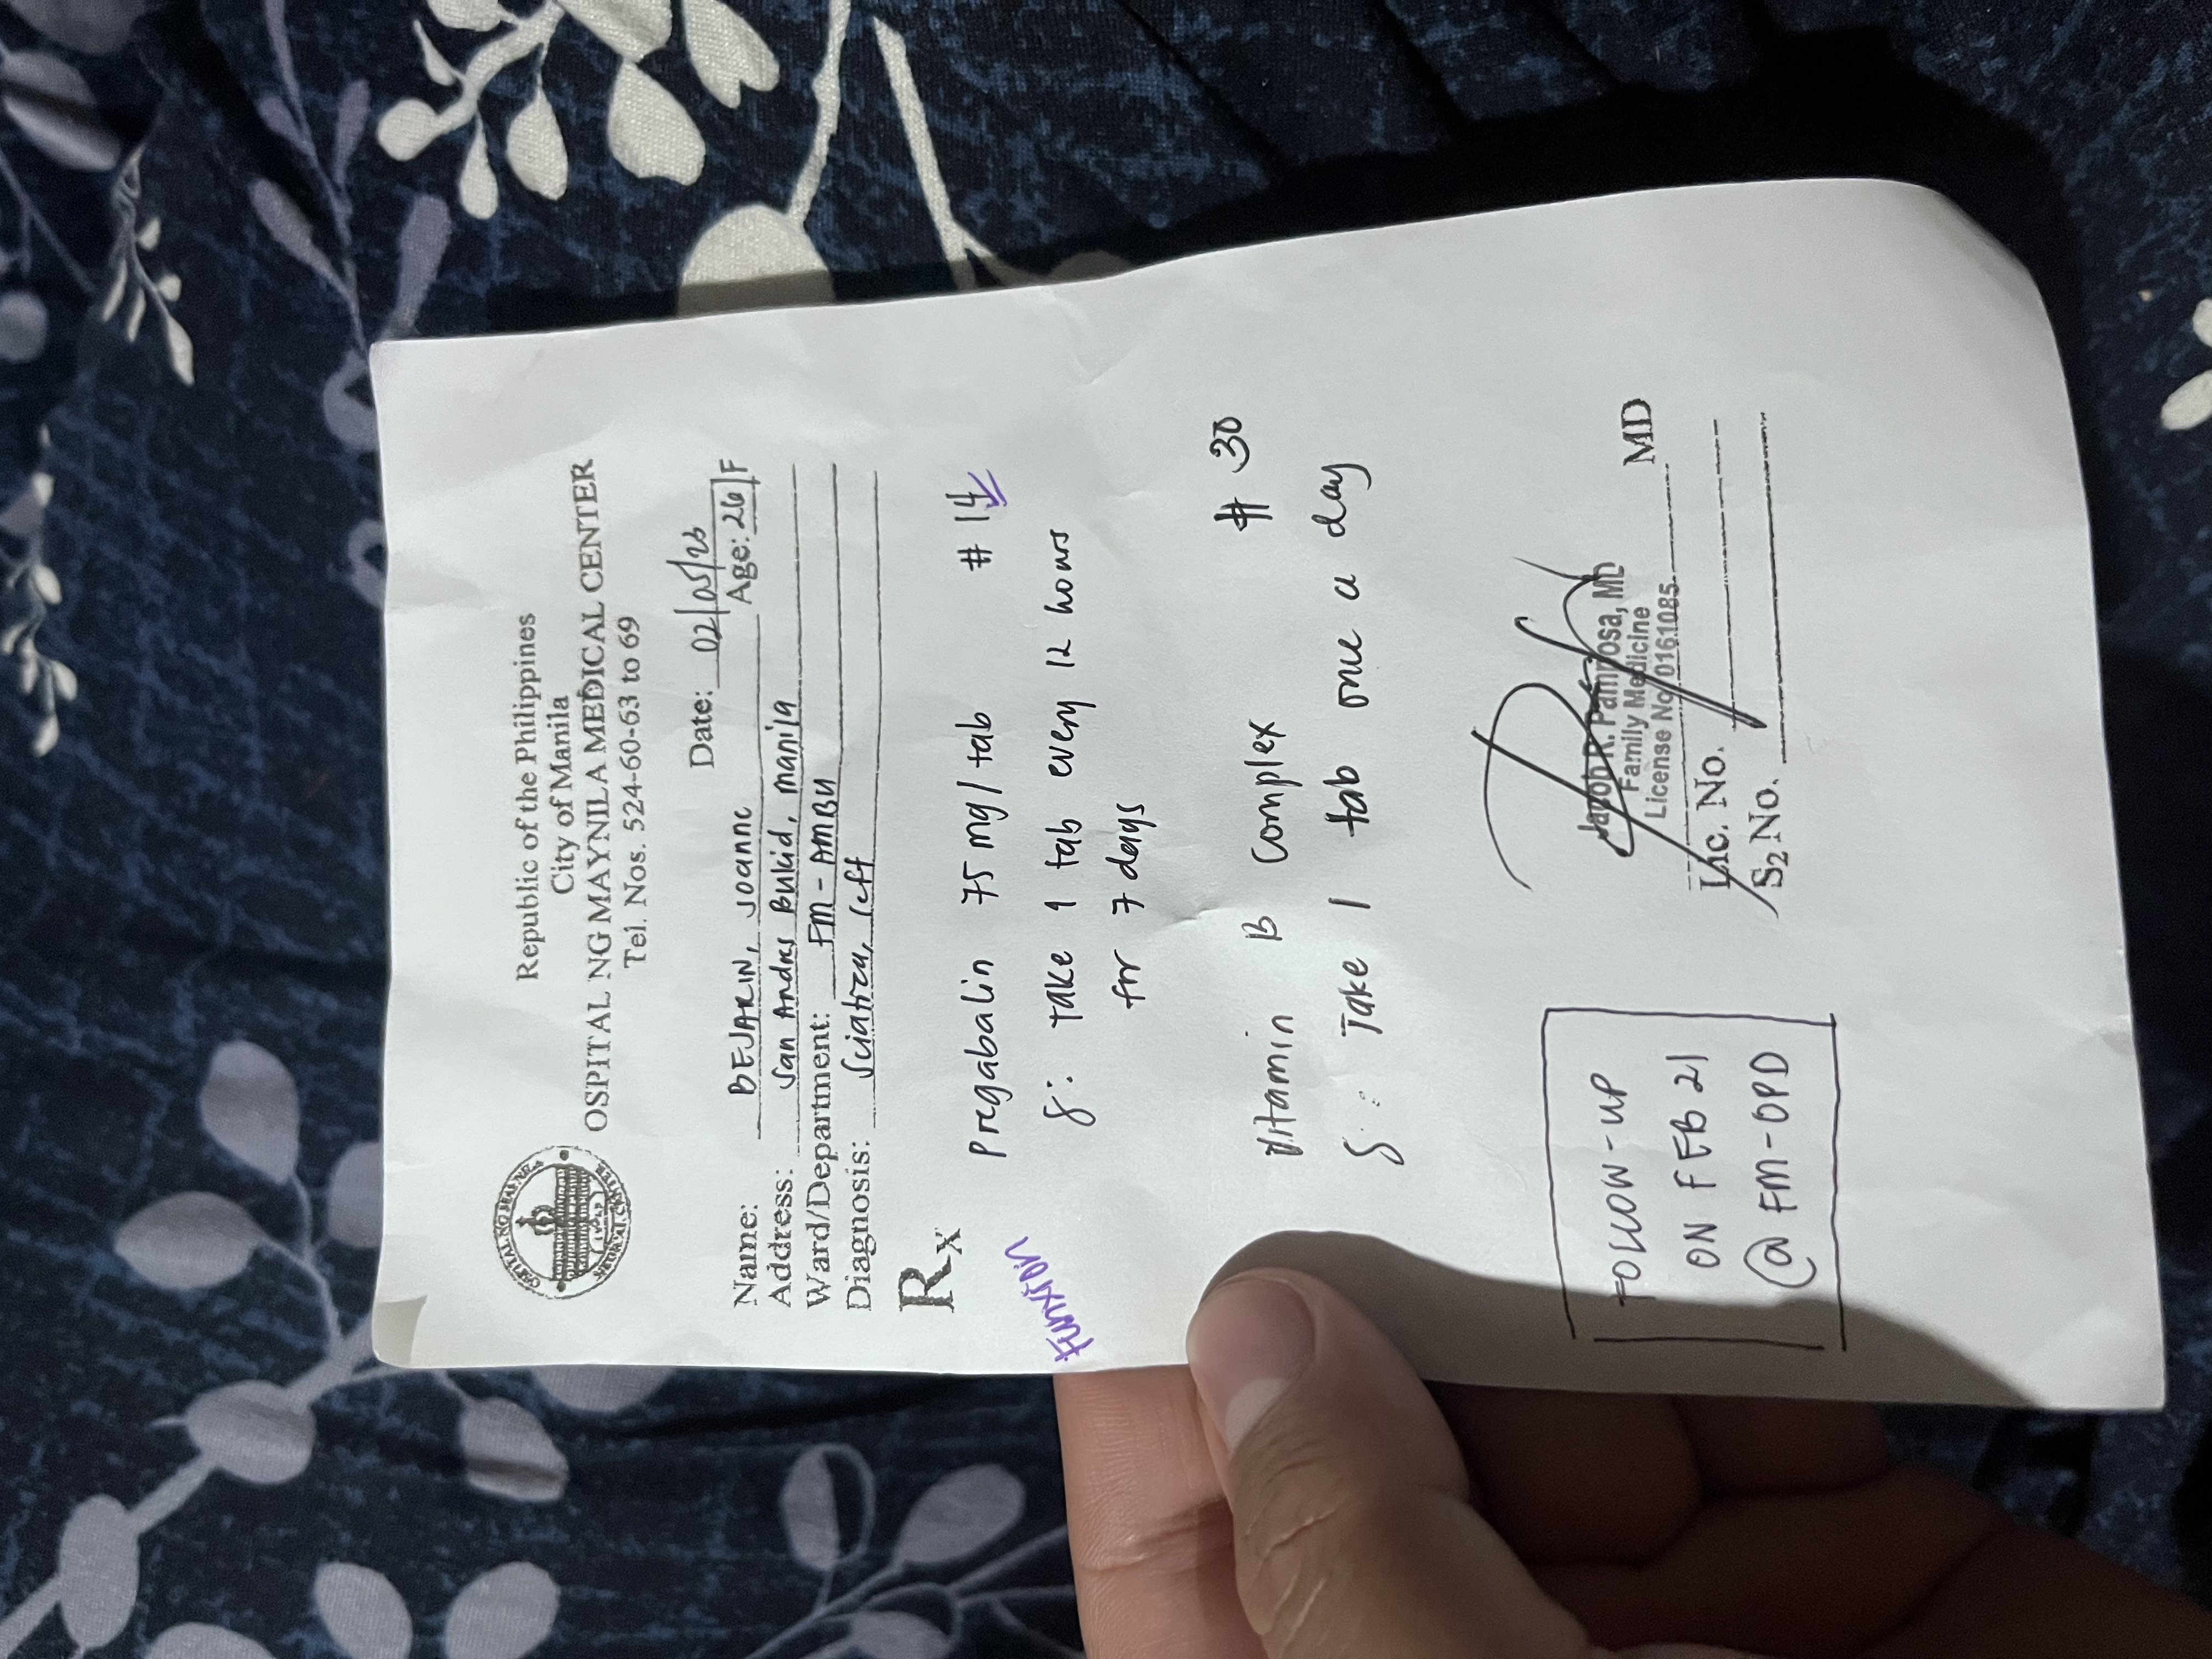 OSPITAL NG MAYNILA
MEDICAL CENTER
Republic of the Philippines
City of Manila
OSPITAL NG MAYNILA MEDICAL CENTER
Tel. Nos. 524-60-63 to 69
Date: 02/05/23
Name: BEJARIN, Joanne Age: 26/F
Address: San Andres Bukid, Manila
Ward/Department: FM-AMBU
Diagnosis: Sciatica, left
Rx
Pregabalin 75 mg/tab # 14
Funxion
S: Take 1 tab every 12 hours
for 7 days
Vitamin B Complex # 30
S: Take 1 tab once a day
Jacob R. Pamposa, MD
Family Medicine
License No 0161085
MD
Lic. No.
S2 No.
FOLLOW-UP
ON FEB 21
@ FM-OPD